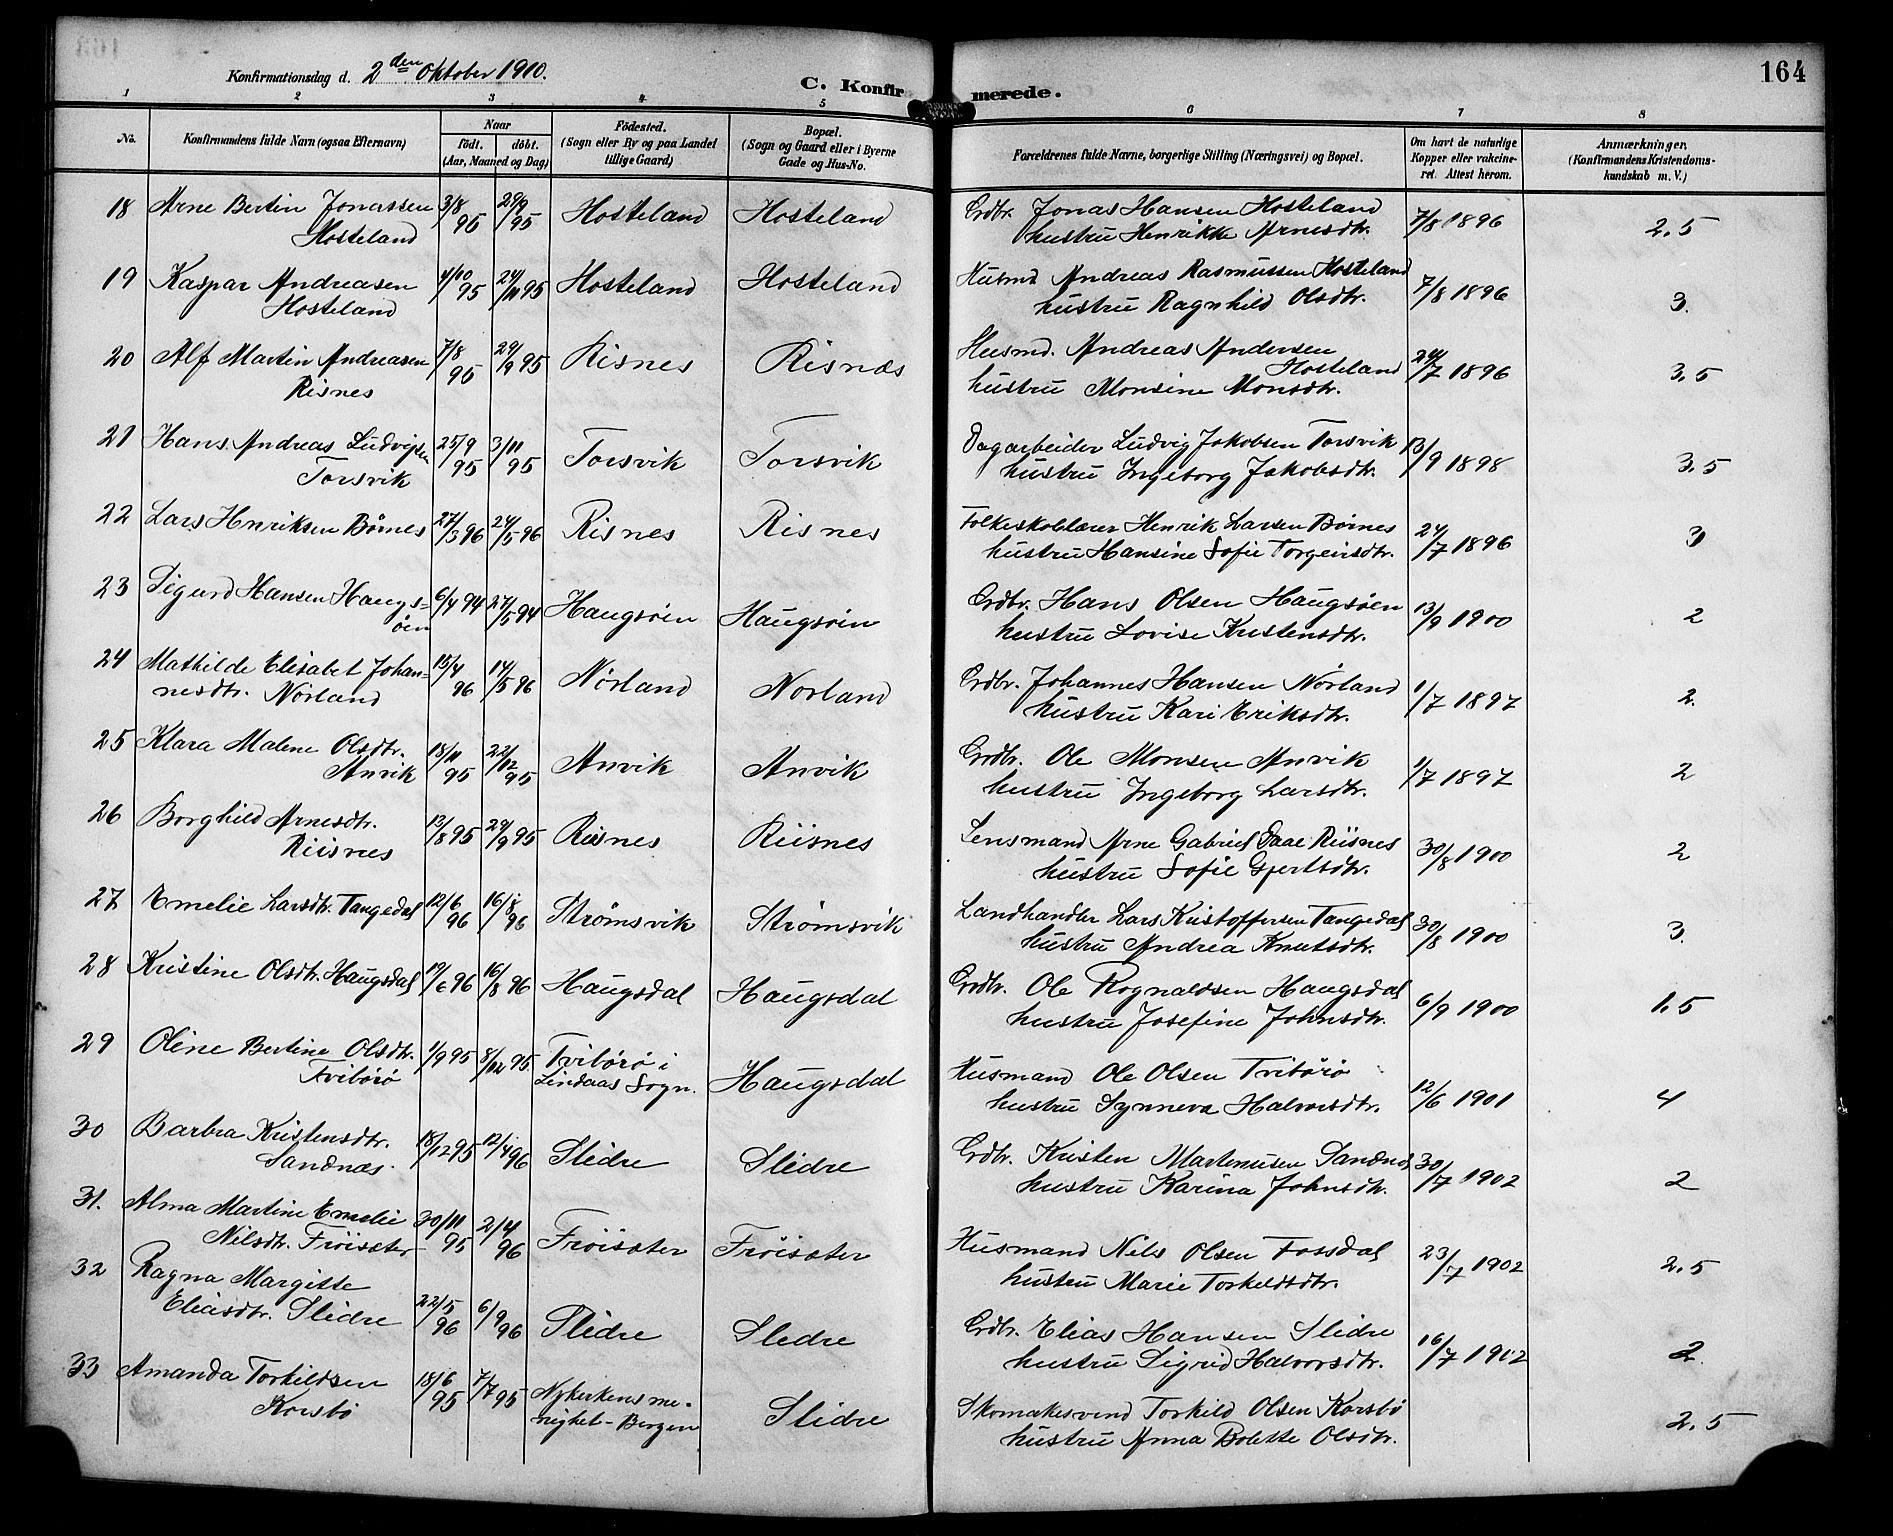 164
Konfirmationsdag d. 2den Oktober 1910.
C. Konfirmerede.
1 2 3 4 5 6 7 8
No. Konfirmandens fulde Navn (ogsaa Efternavn) Naar født. døbt. (Aar, Maaned og Dag) Fødested. (Sogn eller By og paa Landet tillige Gaard) Bopæl. (Sogn og Gaard eller i Byerne Gade og Hus-No. Forældrenes fulde Navne, borgerlige Stilling (Næringsvei) og Bopæl. Om havt de naturlige Kopper eller vakcineret. Attest herom. Anmærkninger. (Konfirmandens Kristendomskundskab m. V.)
18 Arne Bertin Jonassen 3/8 95 29/9 95 Hosteland Hosteland Grdbr. Jonas Hansen Hosteland 7/8 1896 2.5
Hosteland hustru Henrikke Arnesdtr.
19 Kaspar Andreasen 4/10 95 24/11 95 Hosteland Hosteland Husmd. Andreas Rasmussen Hosteland 7/8 1896 3.
Hosteland hustru Ragnhild Olsdtr.
20 Alf Martin Andreasen 7/8 95 29/9 95 Risnes Risnæs Husmd. Andreas Andersen Hosteland 24/7 1896 3.5
Risnes hustru Monsine Monsdtr.
21 Hans Andreas Ludvigsen 25/9 95 3/11 95 Torsvik Torsvik Dagarbeider Ludvig Jakobsen Torsvik 13/9 1898 3.5
Torsvik hustru Ingeborg Jakobsdtr.
22 Lars Henriksen Børnes 27/3 96 24/5 96 Risnes Risnes Folkeskolelærer Henrik Larsen Børnes 24/7 1896 3
hustru Hansine Sofie Torgeirsdtr.
23 Sigurd Hansen Haugs= 6/4 94 27/5 94 Haugsøen Haugsøin Grdbr. Hans Olsen Haugsøen 13/9 1900 2
øen hustru Lovise Kristensdtr.
24 Mathilde Elisabet Johan- 15/4 96 14/5 96 Nørland Norland Grdbr. Johannes Hansen Nørland 1/7 1897 2.
nesdtr. Nørland hustru Kari Eriksdtr.
25 Klara Malene Olsdtr. 18/11 95 22/12 95 Anvik Anvik Grdbr. Ole Monsen Anvik 1/7 1897 2
Anvik hustru Ingeborg Larsdtr.
26 Borghild Arnesdtr. 13/8 95 29/9 95 Risnes Riisnes Lensmand Arne Gabriel Daae Riisnes 30/8 1900 2
Riisnes hustru Sofie Gjertsdtr.
27 Emelie Larsdtr. Tangedal 12/6 96 16/8 96 Strømsvik Strømsvik Landhandler Lars Kristoffersen Tangedal 30/8 1900 3.
hustru Andrea Knutsdtr.
28 Kristine Olsdtr. Haugsdal 19/6 96 16/8 96 Haugsdal Haugsdal Grdbr. Ole Rognaldsen Haugsdal 6/9 1900 1.5
hustru Josefine Johnsdtr.
29 Oline Bertine Olsdtr. 1/9 95 8/12 95 Tvibørø i Lindaas Sogn. Haugsdal Husmand Ole Olsen Tvibørø 12/6 1901 4
Tvibørø hustru Synneva Halvorsdtr.
30 Barbra Kristensdtr. 18/12 95 12/4 96 Slidre Slidre Grdbr. Kristen Martenusen Sandnes 30/7 1902 2
Sandnæs. hustru Karina Johnsdtr.
31. Alma Martine Emelie 30/11 95 2/4 96 Frøisæter Frøisæter Husmand Nils Olsen Fossdal 23/7 1902 2.5
Nilsdtr. Frøisæter hustru Marie Torkeldsdtr.
32 Ragna Margitte 22/5 96 6/9 96 Slidre Sledre Grdbr. Elias Hansen Slidre 16/7 1902 2.
Eliasdtr. Slidre hustru Sigrid Halvorsdtr.
33 Amanda Torkildsen 18/6 95 7/7 95 Nykirkens me- nighet - Bergen Slidre Skomakersvend Torkild Olsen Korsbø 2.5
Korsbø hustru Anna Bolette Olsdtr.